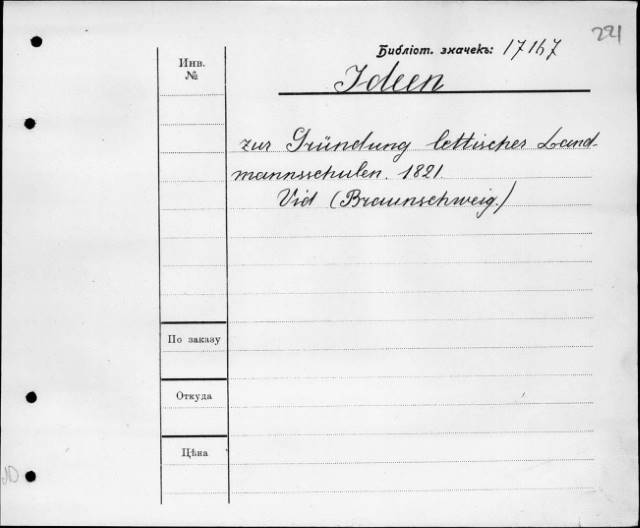 221
Библіот. значекъ: 17167
Инв.
№
Ideen
zur Gründung lettischer Land-
mannsschulen. 1821.
Vid (Braunschweig.)
По заказу
Откуда
Цѣна